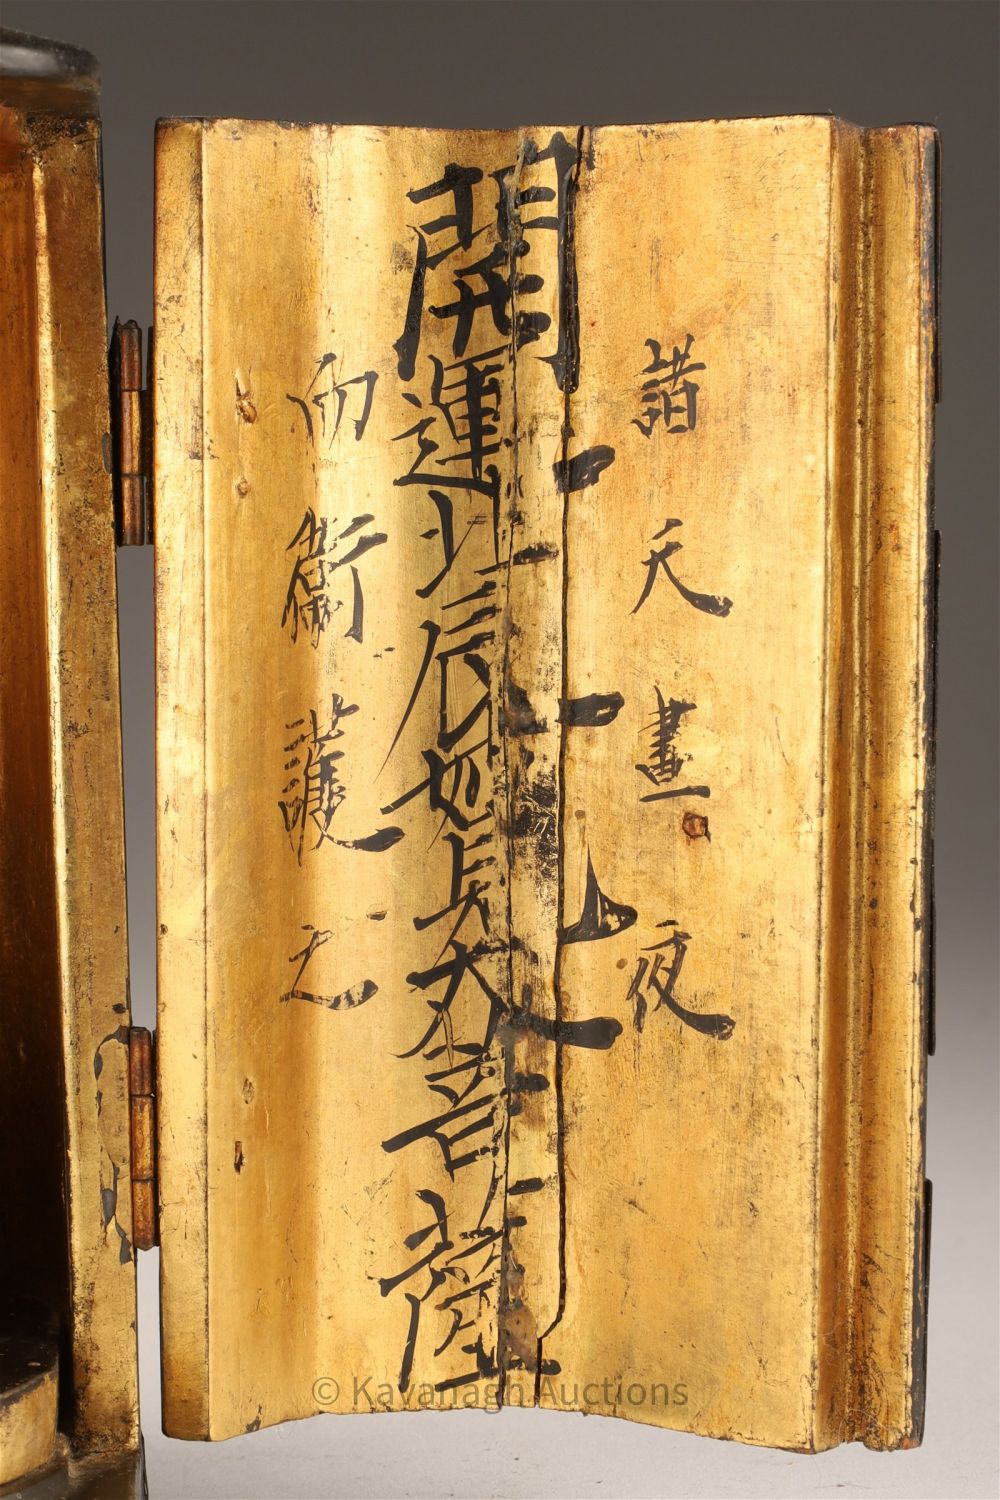 諸天晝夜
開運北辰妙見大菩薩
而衛護之
© Kavanagh Auctions